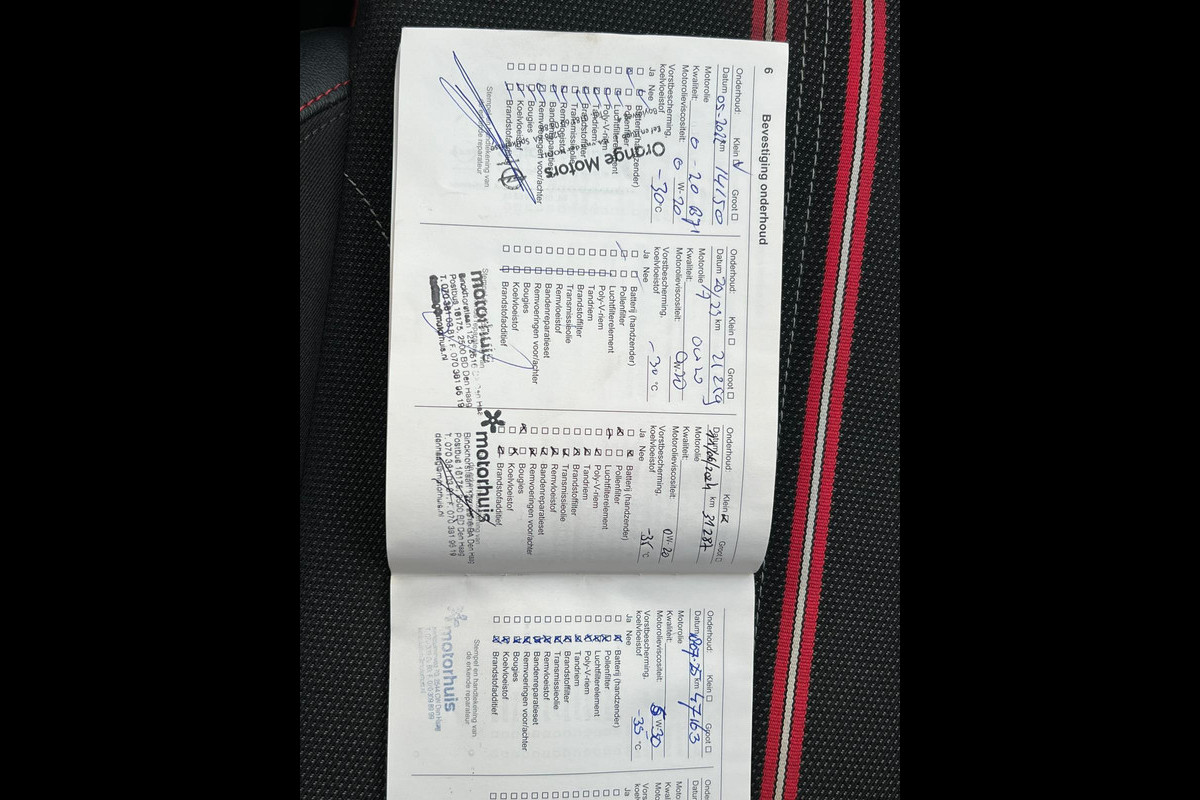 6 Bevestiging onderhoud
Onderhoud: Klein ☑ Groot ☐
Datum 05-2022 km 14150
Motorolie
Kwaliteit: 0-20 B71
Motorolieviscositeit: 0 W-20
Vorstbescherming,
koelvloeistof -30 °C
Ja Nee
Batterij (handzender)
Pollenfilter
Luchtfilterelement
Poly-V-riem
Tandriem
Brandstoffilter
Transmissieolie
Remvloeistof
Bandenreparatieset
Remvoeringen voor/achter
Bougies
Koelvloeistof
Brandstofadditief
Stempel en handtekening van
de erkende reparateur
Orange Motors
Onderhoud: Klein ☐ Groot ☐
Datum 20/23 km 21259
Motorolie
Kwaliteit: 0W20
Motorolieviscositeit: 0W20
Vorstbescherming,
koelvloeistof -30 °C
Ja Nee
Batterij (handzender)
Pollenfilter
Luchtfilterelement
Poly-V-riem
Tandriem
Brandstoffilter
Transmissieolie
Remvloeistof
Bandenreparatieset
Remvoeringen voor/achter
Bougies
Koelvloeistof
Brandstofadditief
motorhuis
Postbus 16175, 2500 BD Den Haag
Onderhoud: Klein ☒ Groot ☐
Datum km 31287
Motorolie
Kwaliteit:
Motorolieviscositeit: 0W-20
Vorstbescherming,
koelvloeistof -35 °C
Ja Nee
Batterij (handzender)
Pollenfilter
Luchtfilterelement
Poly-V-riem
Tandriem
Brandstoffilter
Transmissieolie
Remvloeistof
Bandenreparatieset
Remvoeringen voor/achter
Bougies
Koelvloeistof
Brandstofadditief
motorhuis
Postbus 16175, 2500 BD Den Haag
Onderhoud: Klein ☐ Groot ☐
Datum km 47163
Motorolie
Kwaliteit:
Motorolieviscositeit: 5W30
Vorstbescherming,
koelvloeistof -35 °C
Ja Nee
Batterij (handzender)
Pollenfilter
Luchtfilterelement
Poly-V-riem
Tandriem
Brandstoffilter
Transmissieolie
Remvloeistof
Bandenreparatieset
Remvoeringen voor/achter
Bougies
Koelvloeistof
Brandstofadditief
Stempel en handtekening van
de erkende reparateur
motorhuis